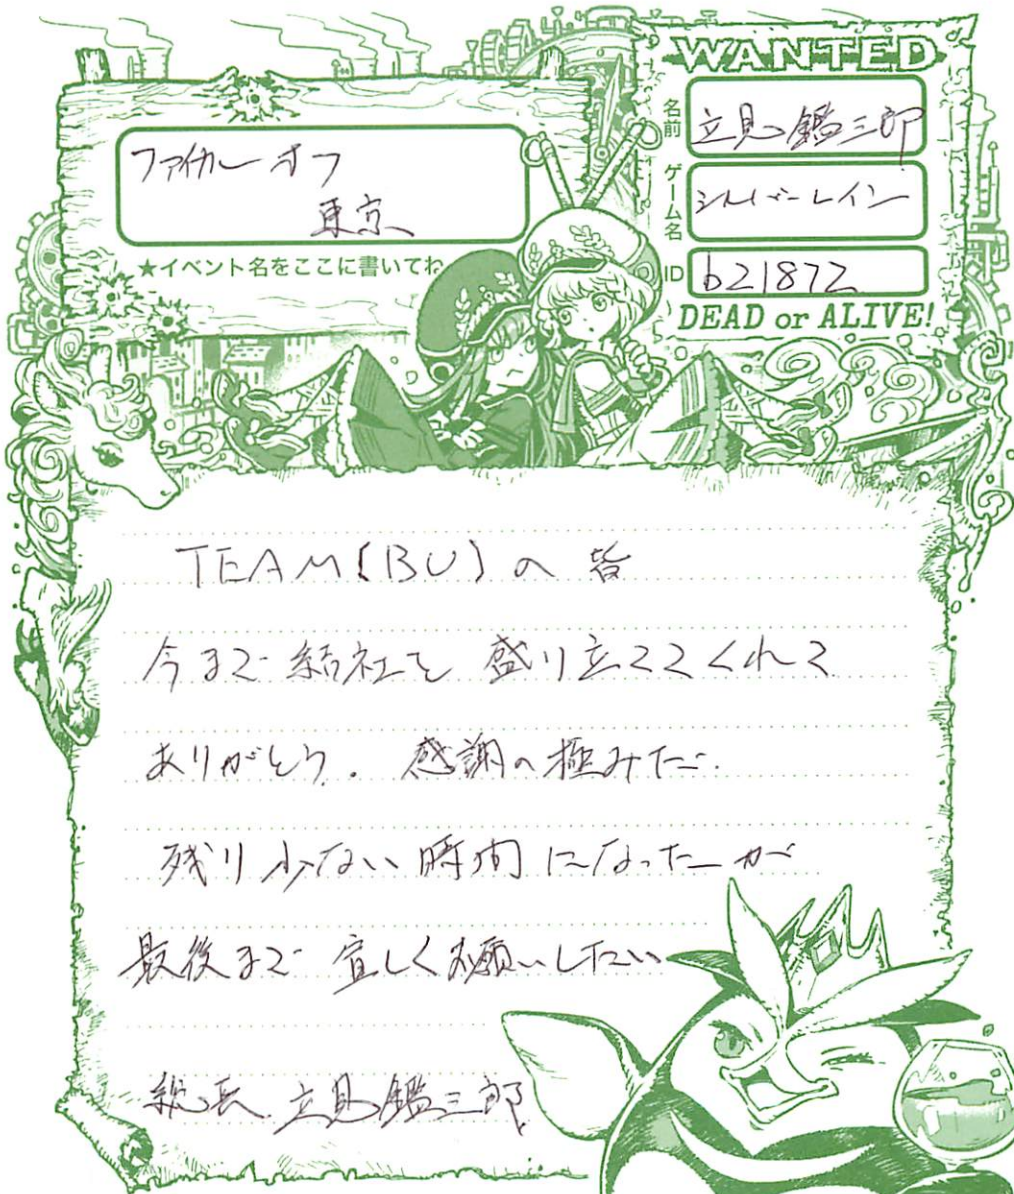 ファイカーオフ
東京
★イベント名をここに書いてね
WANTED
名前
立見鑑三郎
ゲーム名
シルバーレイン
ID
b21872
DEAD or ALIVE!
TEAM(BU)の皆
今まで結社を盛り立ててくれて
ありがとう。感謝の極みだ。
残り少ない時間になったーが
最後まで宜しくお願いしたい
総長 立見鑑三郎